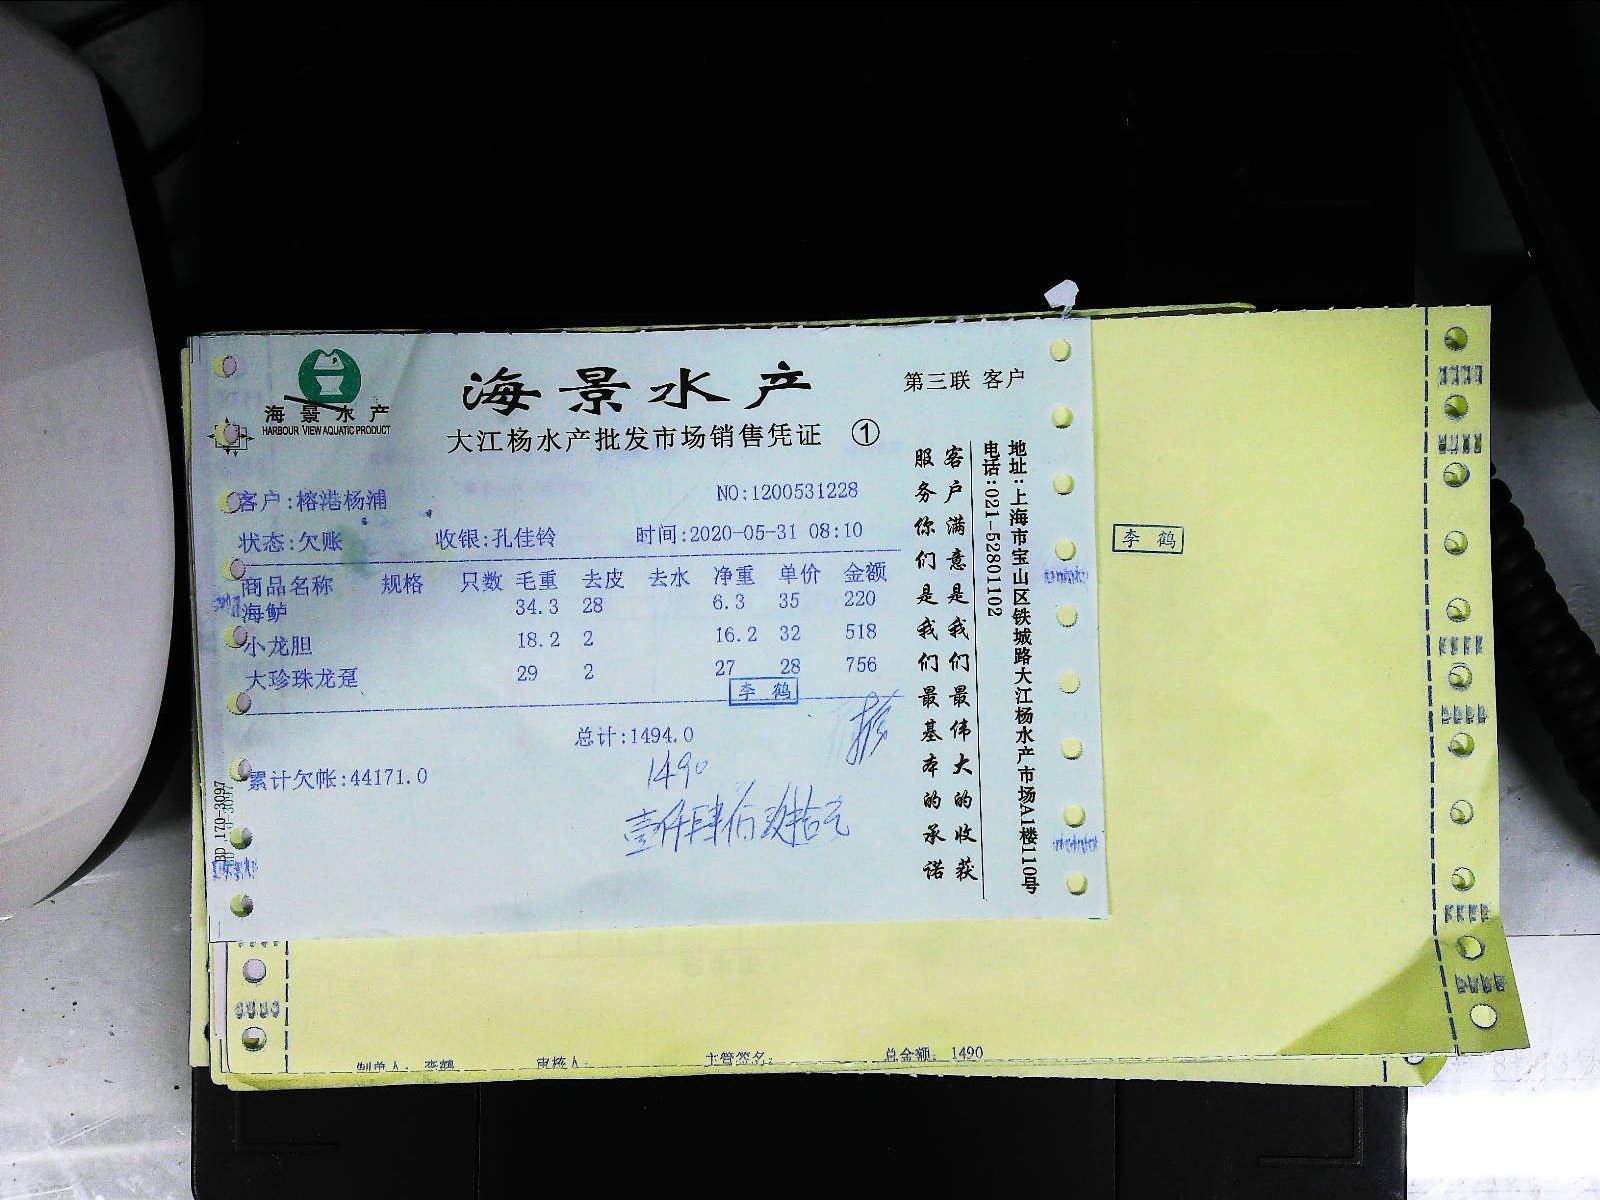 海景水产
HARBOUR VIEW AQUATIC PRODUCT
海景水产
大江杨水产批发市场销售凭证 ①
第三联 客户
客户:榕港杨浦
NO:1200531228
状态:欠账 收银:孔佳铃 时间:2020-05-31 08:10
商品名称 规格 只数 毛重 去皮 去水 净重 单价 金额
海鲈 34.3 28 6.3 35 220
小龙胆 18.2 2 16.2 32 518
大珍珠龙趸 29 2 27 28 756
李鹤
总计:1494.0
累计欠帐:44171.0
1490
壹仟肆佰玖拾元
客户满意是我们最伟大的收获
服务你们是我们最基本的承诺
地址:上海市宝山区铁城路大江杨水产市场A1楼110号
电话:021-52801102
BD 170-3097
李鹤
制单人: 李鹤 审核人: 主管签名: 总金额: 1490